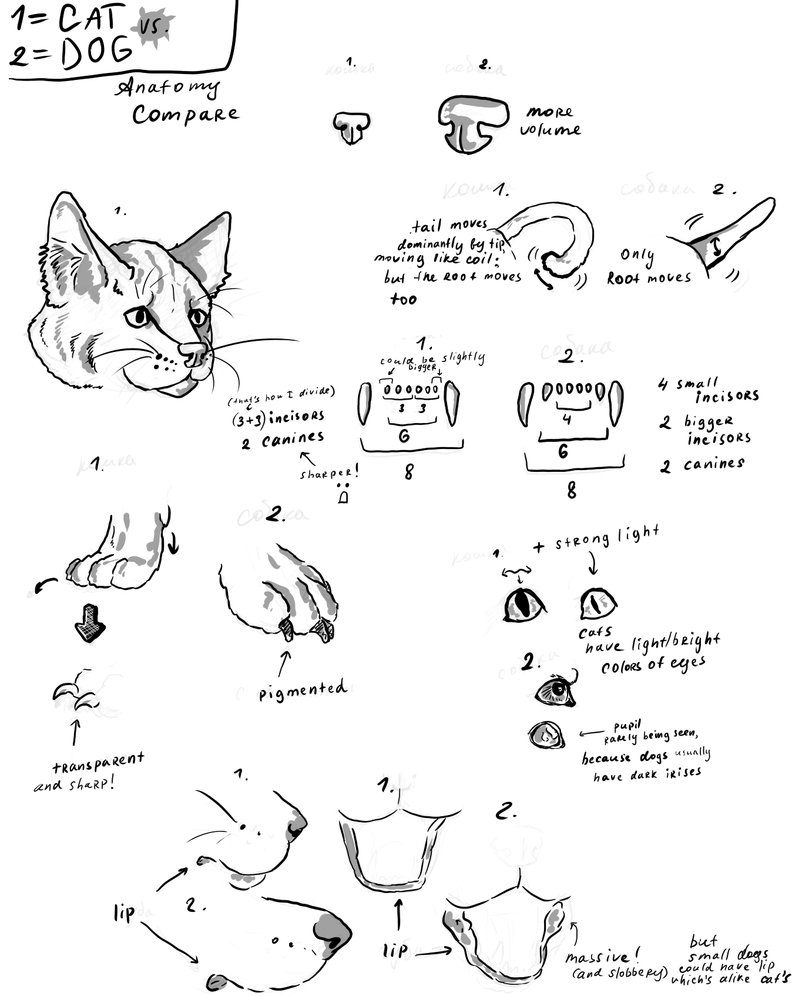 1= CAT vs.
2= DOG
Anatomy
Compare
кошка
1.
собака
2.
more
volume
1.
кошка
1.
tail moves
dominantly by tip,
moving like coil;
but the Root moves
too
собака
2.
Only
Root moves
1.
could be slightly
bigger
(that's how I divide)
(3+3) incisors
2 canines
sharper!
3 3
6
8
собака
2.
4
6
8
4 small
incisors
2 bigger
incisors
2 canines
1.
кошка
transparent
and sharp!
собака
2.
pigmented
кошка
1.
+ strong light
cats
have light/bright
colors of eyes
собака
2.
pupil
rarely being seen,
because dogs usually
have dark irises
1.
lip
2.
1.
lip
2.
massive!
(and slobbery)
but
small dogs
could have lip
which's alike cat's